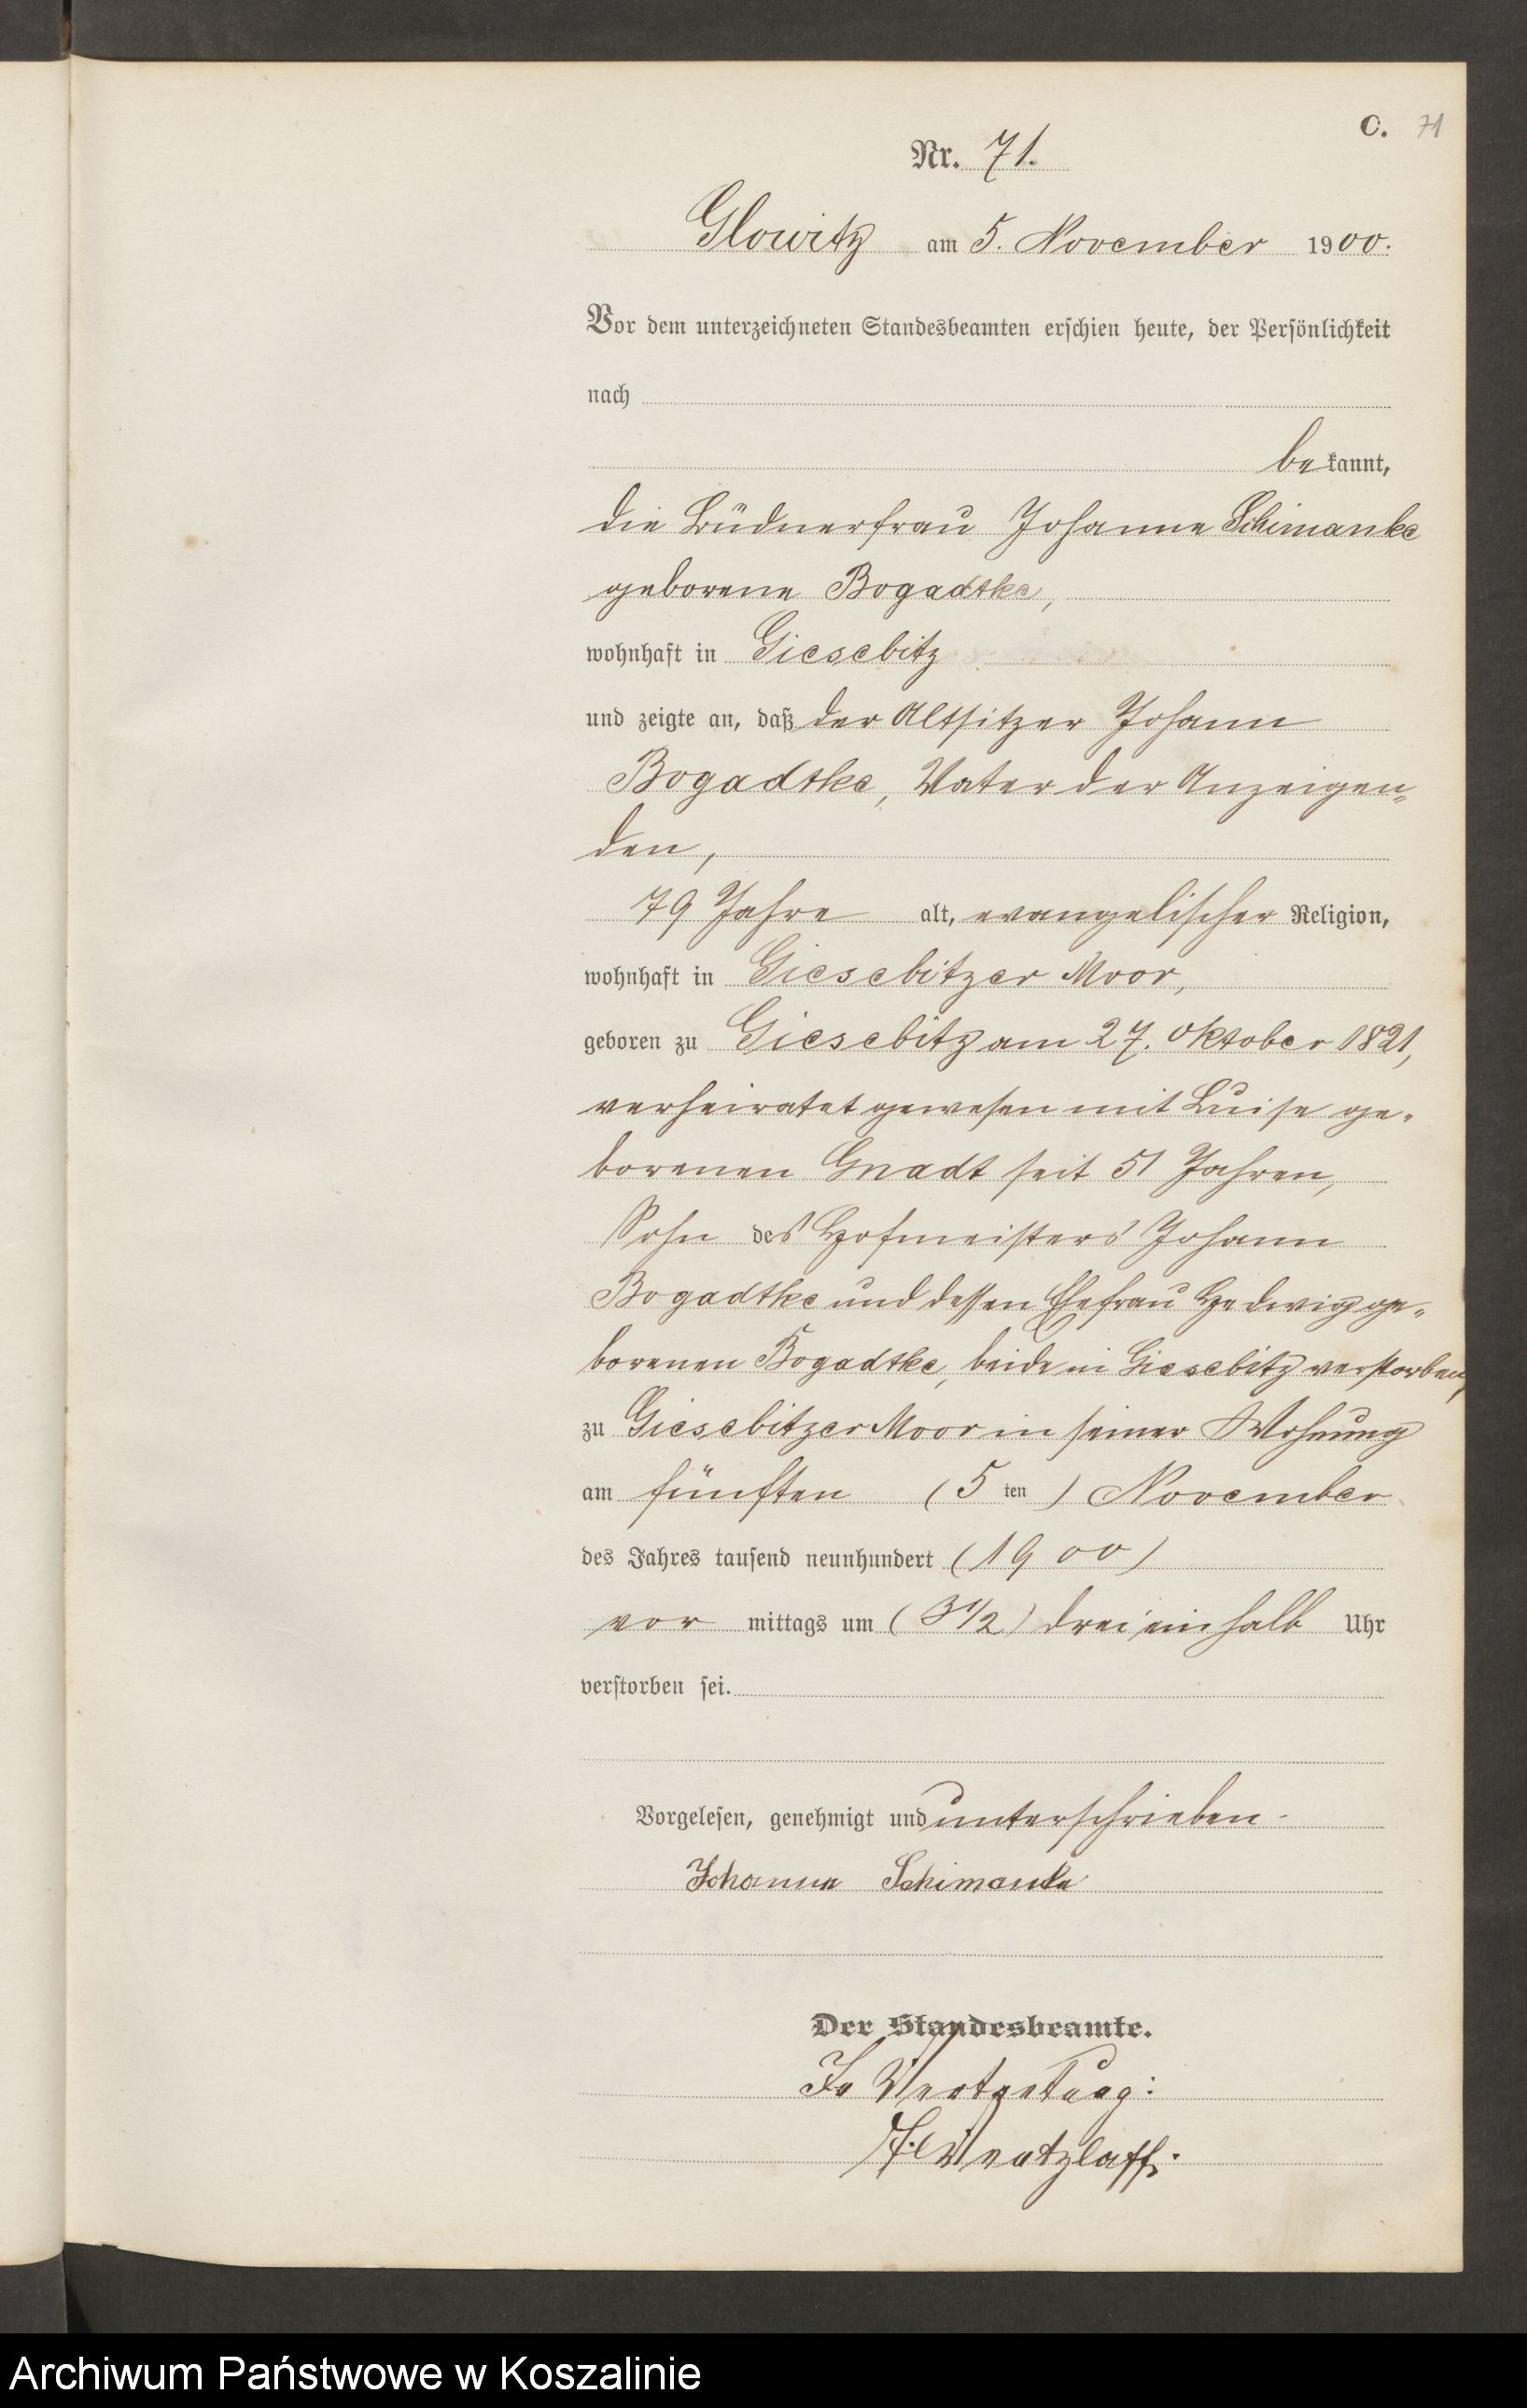 C. 71
Nr. 71.
Glowitz am 5. November 1900.
Vor dem unterzeichneten Standesbeamten erschien heute, der Persönlichkeit
nach
bekannt,
die Büdnerfrau Johanne Schimanke
geborene Bogadtke,
wohnhaft in Giesebitz
und zeigte an, daß der Altsitzer Johann
Bogadtke, Vater der Anzeigen-
den,
79 Jahre alt, evangelischer Religion,
wohnhaft in Giesebitzer Moor,
geboren zu Giesebitz am 27. Oktober 1821,
verheiratet gewesen mit Luise ge-
borenen Gnadt seit 51 Jahren,
Sohn des Hofmeisters Johann
Bogadtke und dessen Ehefrau Hedwig ge-
borenen Bogadtke, beide in Giesebitz verstorben,
zu Giesebitzer Moor in seiner Wohnung
am fünften (5 ten) November
des Jahres tausend neunhundert (1900)
vor mittags um (3 1/2) drei ein halb Uhr
verstorben sei.
Vorgelesen, genehmigt und unterschrieben.
Johanne Schimanke
Der Standesbeamte.
In Vertretung:
Wentzlaff.
Archiwum Państwowe w Koszalinie